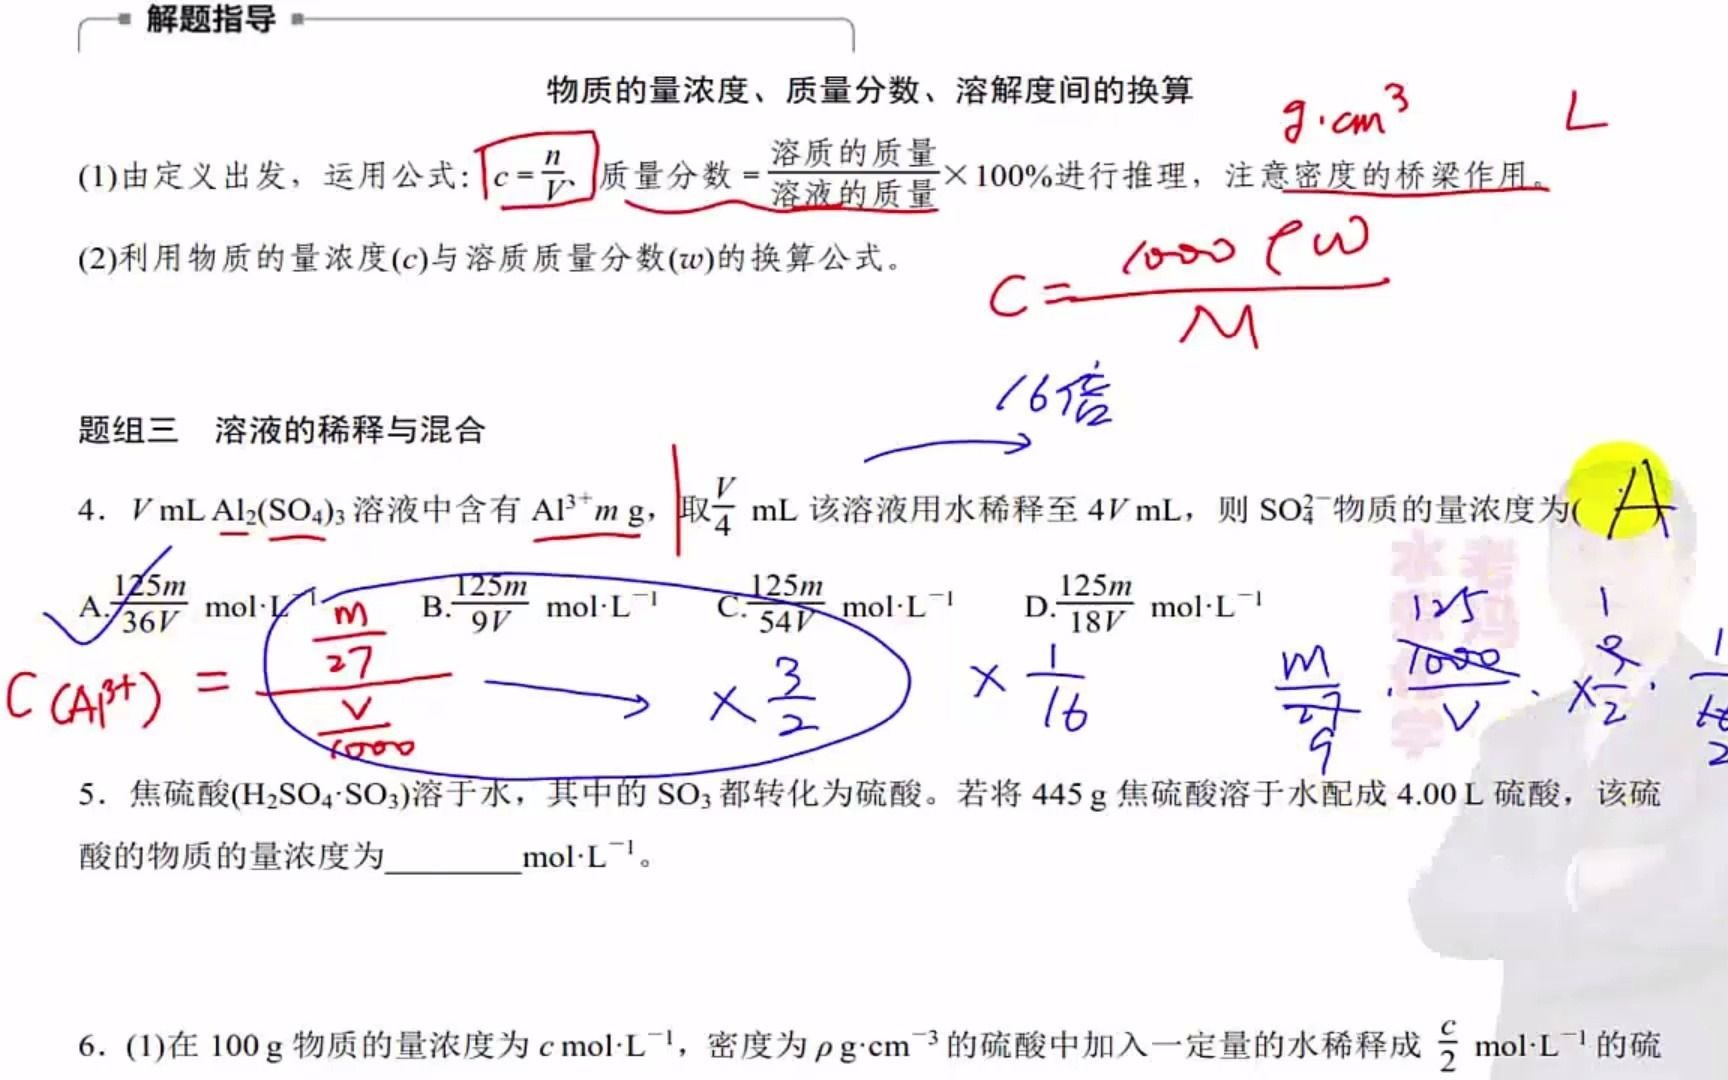 解题指导
物质的量浓度、质量分数、溶解度间的换算
g·cm³ L
(1)由定义出发，运用公式：c=n/V、质量分数=溶质的质量/溶液的质量×100%进行推理，注意密度的桥梁作用。
(2)利用物质的量浓度(c)与溶质质量分数(w)的换算公式。
C=1000ρw/M
16倍
题组三 溶液的稀释与混合
4．V mL Al₂(SO₄)₃溶液中含有Al³⁺ m g，取V/4 mL 该溶液用水稀释至 4V mL，则 SO₄²⁻物质的量浓度为( A
A.125m/36V mol·L⁻¹ B.125m/9V mol·L⁻¹ C.125m/54V mol·L⁻¹ D.125m/18V mol·L⁻¹
C(Al³⁺) = (m/27)/(V/1000) ×3/2 ×1/16 m/27 9 · 125 1000/V · ×3/2 1 · 1/16 2
5．焦硫酸(H₂SO₄·SO₃)溶于水，其中的 SO₃都转化为硫酸。若将 445 g 焦硫酸溶于水配成 4.00 L 硫酸，该硫
酸的物质的量浓度为________mol·L⁻¹。
6．(1)在 100 g 物质的量浓度为 c mol·L⁻¹，密度为 ρ g·cm⁻³的硫酸中加入一定量的水稀释成 c/2 mol·L⁻¹的硫